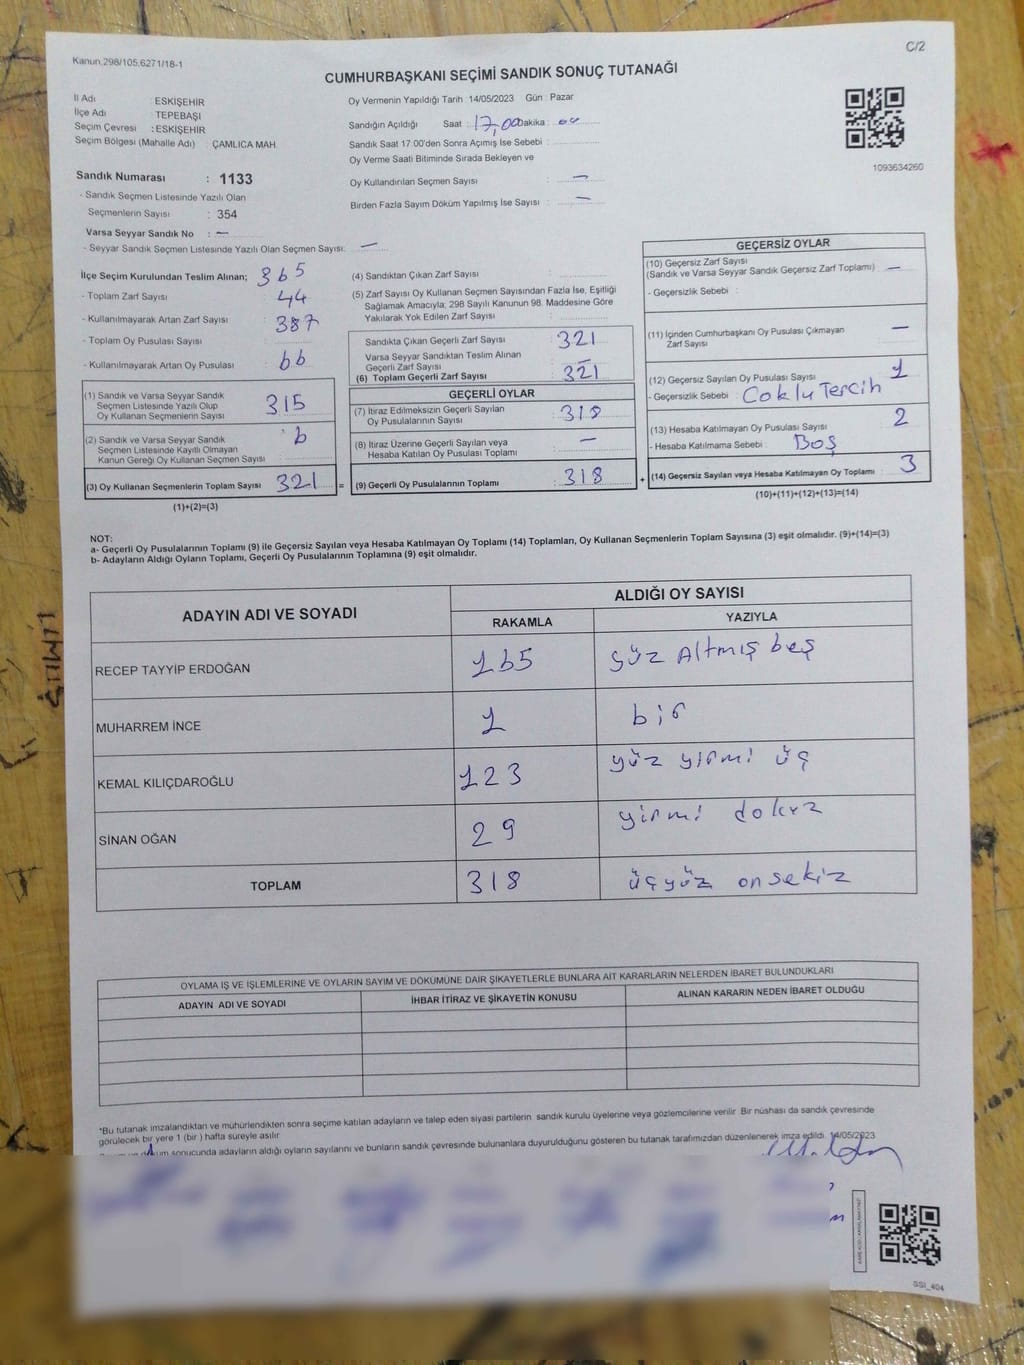 Kanun.298/105,6271/18-1
C/2
CUMHURBAŞKANI SEÇİMİ SANDIK SONUÇ TUTANAĞI
İl Adı ESKİŞEHİR
İlçe Adı TEPEBAŞI
Seçim Çevresi : ESKİŞEHİR
Seçim Bölgesi (Mahalle Adı) ÇAMLICA MAH.
Oy Vermenin Yapıldığı Tarih : 14/05/2023 Gün : Pazar
Sandığın Açıldığı Saat : 17,00 Dakika : 00
Sandık Saat 17.00'den Sonra Açımış İse Sebebi :
Oy Verme Saati Bitiminde Sırada Bekleyen ve
Oy Kullandırılan Seçmen Sayısı : —
Birden Fazla Sayım Döküm Yapılmış İse Sayısı : —
1093634260
Sandık Numarası : 1133
- Sandık Seçmen Listesinde Yazılı Olan
Seçmenlerin Sayısı : 354
Varsa Seyyar Sandık No : —
- Seyyar Sandık Seçmen Listesinde Yazılı Olan Seçmen Sayısı: —
İlçe Seçim Kurulundan Teslim Alınan; 365
- Toplam Zarf Sayısı 44
- Kullanılmayarak Artan Zarf Sayısı : 387
- Toplam Oy Pusulası Sayısı :
- Kullanılmayarak Artan Oy Pusulası : 66
(1) Sandık ve Varsa Seyyar Sandık
Seçmen Listesinde Yazılı Olup
Oy Kullanan Seçmenlerin Sayısı : 315
(2) Sandık ve Varsa Seyyar Sandık
Seçmen Listesinde Kayıtlı Olmayan
Kanun Gereği Oy Kullanan Seçmen Sayısı : 6
(3) Oy Kullanan Seçmenlerin Toplam Sayısı : 321 =
(1)+(2)=(3)
(4) Sandıktan Çıkan Zarf Sayısı :
(5) Zarf Sayısı Oy Kullanan Seçmen Sayısından Fazla İse, Eşitliği
Sağlamak Amacıyla; 298 Sayılı Kanunun 98. Maddesine Göre
Yakılarak Yok Edilen Zarf Sayısı :
Sandıkta Çıkan Geçerli Zarf Sayısı : 321
Varsa Seyyar Sandıktan Teslim Alınan
Geçerli Zarf Sayısı : —
(6) Toplam Geçerli Zarf Sayısı : 321
GEÇERLİ OYLAR
(7) İtiraz Edilmeksizin Geçerli Sayılan
Oy Pusulalarının Sayısı : 318
(8) İtiraz Üzerine Geçerli Sayılan veya
Hesaba Katılan Oy Pusulası Toplamı : —
(9) Geçerli Oy Pusulalarının Toplamı : 318 +
GEÇERSİZ OYLAR
(10) Geçersiz Zarf Sayısı
(Sandık ve Varsa Seyyar Sandık Geçersiz Zarf Toplamı) : —
- Geçersizlik Sebebi :
(11) İçinden Cumhurbaşkanı Oy Pusulası Çıkmayan
Zarf Sayısı : —
(12) Geçersiz Sayılan Oy Pusulası Sayısı : 1
- Geçersizlik Sebebi : Çoklu Tercih
(13) Hesaba Katılmayan Oy Pusulası Sayısı : 2
- Hesaba Katılmama Sebebi : Boş
(14) Geçersiz Sayılan veya Hesaba Katılmayan Oy Toplamı : 3
(10)+(11)+(12)+(13)=(14)
NOT:
a- Geçerli Oy Pusulalarının Toplamı (9) ile Geçersiz Sayılan veya Hesaba Katılmayan Oy Toplamı (14) Toplamları, Oy Kullanan Seçmenlerin Toplam Sayısına (3) eşit olmalıdır. (9)+(14)=(3)
b- Adayların Aldığı Oyların Toplamı, Geçerli Oy Pusulalarının Toplamına (9) eşit olmalıdır.
ADAYIN ADI VE SOYADI ALDIĞI OY SAYISI
RAKAMLA YAZIYLA
RECEP TAYYİP ERDOĞAN 165 yüz Altmış beş
MUHARREM İNCE 1 bir
KEMAL KILIÇDAROĞLU 123 yüz yirmi üç
SİNAN OĞAN 29 yirmi dokuz
TOPLAM 318 üçyüz onsekiz
OYLAMA İŞ VE İŞLEMLERİNE VE OYLARIN SAYIM VE DÖKÜMÜNE DAİR ŞİKAYETLERLE BUNLARA AİT KARARLARIN NELERDEN İBARET BULUNDUKLARI
ADAYIN ADI VE SOYADI İHBAR İTİRAZ VE ŞİKAYETİN KONUSU ALINAN KARARIN NEDEN İBARET OLDUĞU
*Bu tutanak imzalandıktan ve mühürlendikten sonra seçime katılan adayların ve talep eden siyasi partilerin sandık kurulu üyelerine veya gözlemcilerine verilir. Bir nüshası da sandık çevresinde
görülecek bir yere 1 (bir ) hafta süreyle asılır.
sonucunda adayların aldığı oyların sayılarını ve bunların sandık çevresinde bulunanlara duyurulduğunu gösteren bu tutanak tarafımızdan düzenlenerek imza edildi. 14/05/2023
SSI_404